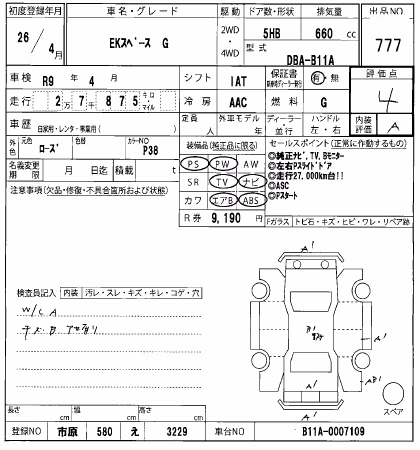 初度登録年月 車名・グレード 駆動 ドア数・形状 排気量 出品NO
26/4月 EKスペース G 2WD・4WD 5HB 660 cc 777
型式 DBA-B11A
車検 R9年4月 シフト IAT 保証書 有・無 評価点 4
走行 2万7千875 キロ・マイル 冷房 AAC 燃料 G
定員 人 外車モデル 年 ディーラー・並行 ハンドル 左・右 内装評価 A
車歴 自家用・レンタ・事業用( )
外色 元色 ローズ 色替 カラーNO P38
装備品(純正品に限る) セールスポイント(正常に作動するもの)
PS PW AW ◎純正ナビ,TV,Bモニター
名義変更期限 月 日迄 積載 t ◎左右Pスライドドア
SR TV ナビ ◎走行27,000km台!!
注意事項(欠品・修復・不具合箇所および状態) ◎ASC
カワ エアB ABS ◎Pスタート
R券 9,190円
Fガラス トビ石・キズ・ヒビ・ワレ・リペア跡
検査員記入 内装 汚レ・スレ・キズ・キレ・コゲ・穴
W/C A
A'
B'
A'
AB'
A'
スペア
長さ cm 幅 cm 高さ cm
登録NO 市原 580 え 3229 車台NO B11A-0007109